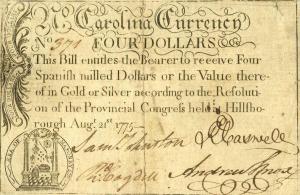 No. Carolina Currency
No. 971
FOUR DOLLARS
This Bill entitles the Bearer to receive Four
Spanish milled Dollars or the Value there-
of in Gold or Silver according to the Resoluti-
on of the Provincial Congress held at Hillsbo-
rough Augt. 21st. 1775
Saml Johnston RCaswell
RCogdell Andrew Knox